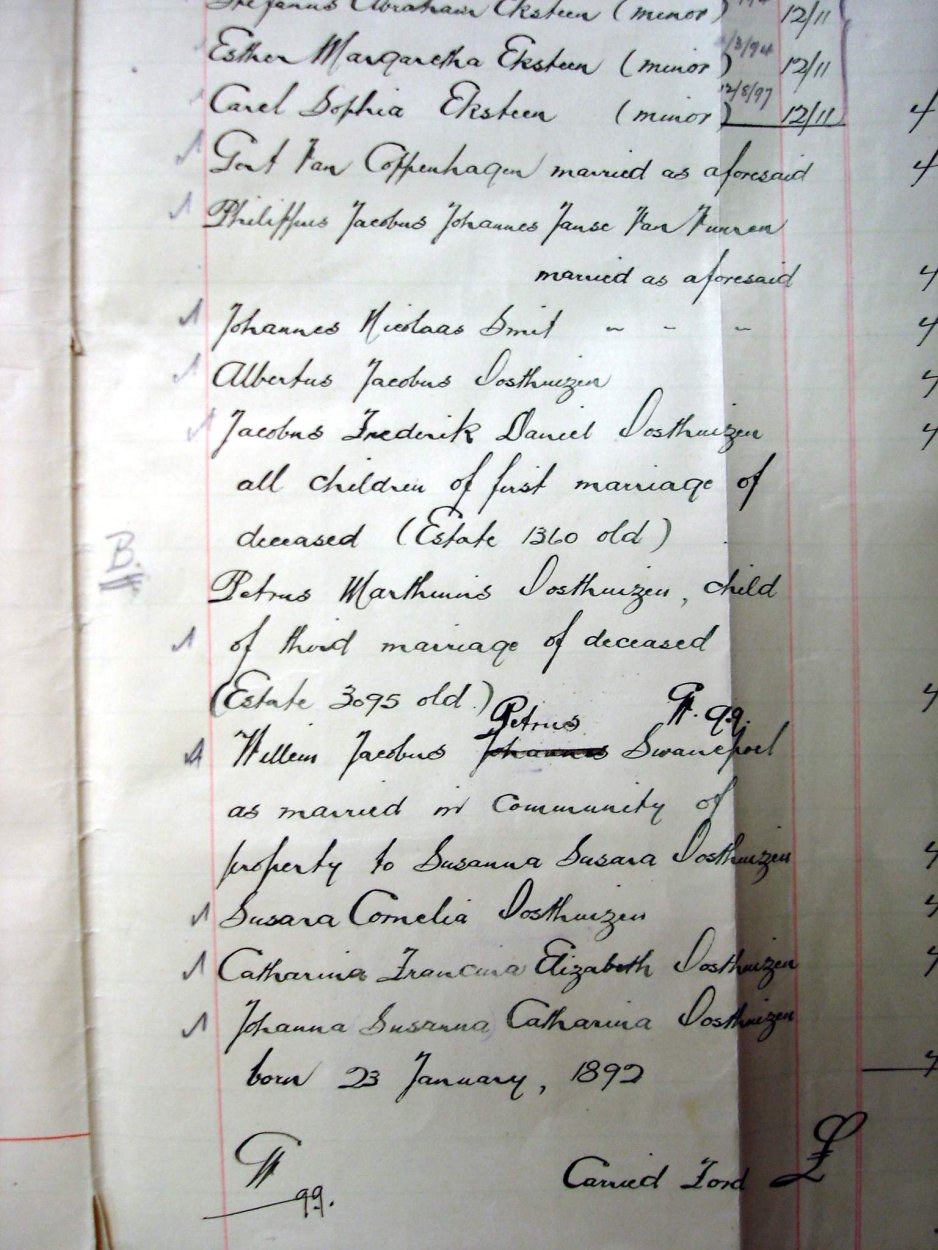 Stefanus Abraham Eksteen (minor) 12/11
Esther Margaretha Eksteen (minor) /3/94 12/11
Carel Sophia Eksteen (minor) 12/8/97 12/11 4
Gert Van Coppenhagen married as aforesaid 4
Philippus Jacobus Johannes Janse Van Vuuren
married as aforesaid 4
Johannes Nicolaas Smit " " " 4
Albertus Jacobus Oosthuizen 4
Jacobus Frederik Daniel Oosthuizen 4
all children of first marriage of
deceased (Estate 1360 old)
B.
Petrus Marthinus Oosthuizen, child
of third marriage of deceased
(Estate 3095 old.) 4
Petrus
Willem Jacobus Johannes Swanepoel
as married in Community of
property to Susanna Susara Oosthuizen 4
Susara Cornelia Oosthuizen 4
Catharina Francina Elizabeth Oosthuizen 4
Johanna Susanna Catharina Oosthuizen
born 23 January, 1892 4
Carried Ford £